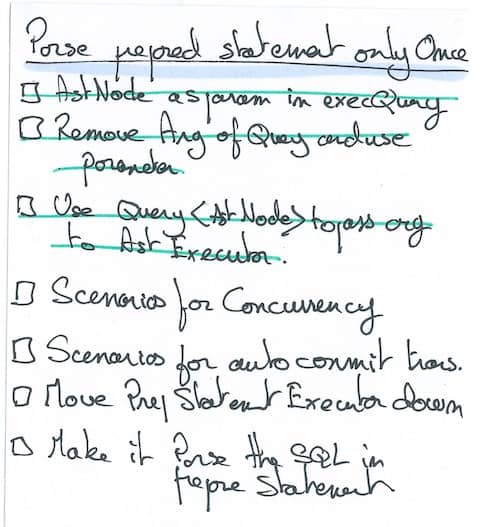 Parse prepared statement only Once
AstNode as param in execQuery
Remove Arg of Query and use
parameter
Use Query<AstNode> to pass arg
to Ast Executor.
Scenarios for Concurrency
Scenarios for auto commit trans.
Move Prep Statement Executor down
Make it Parse the SQL in
prepare Statement